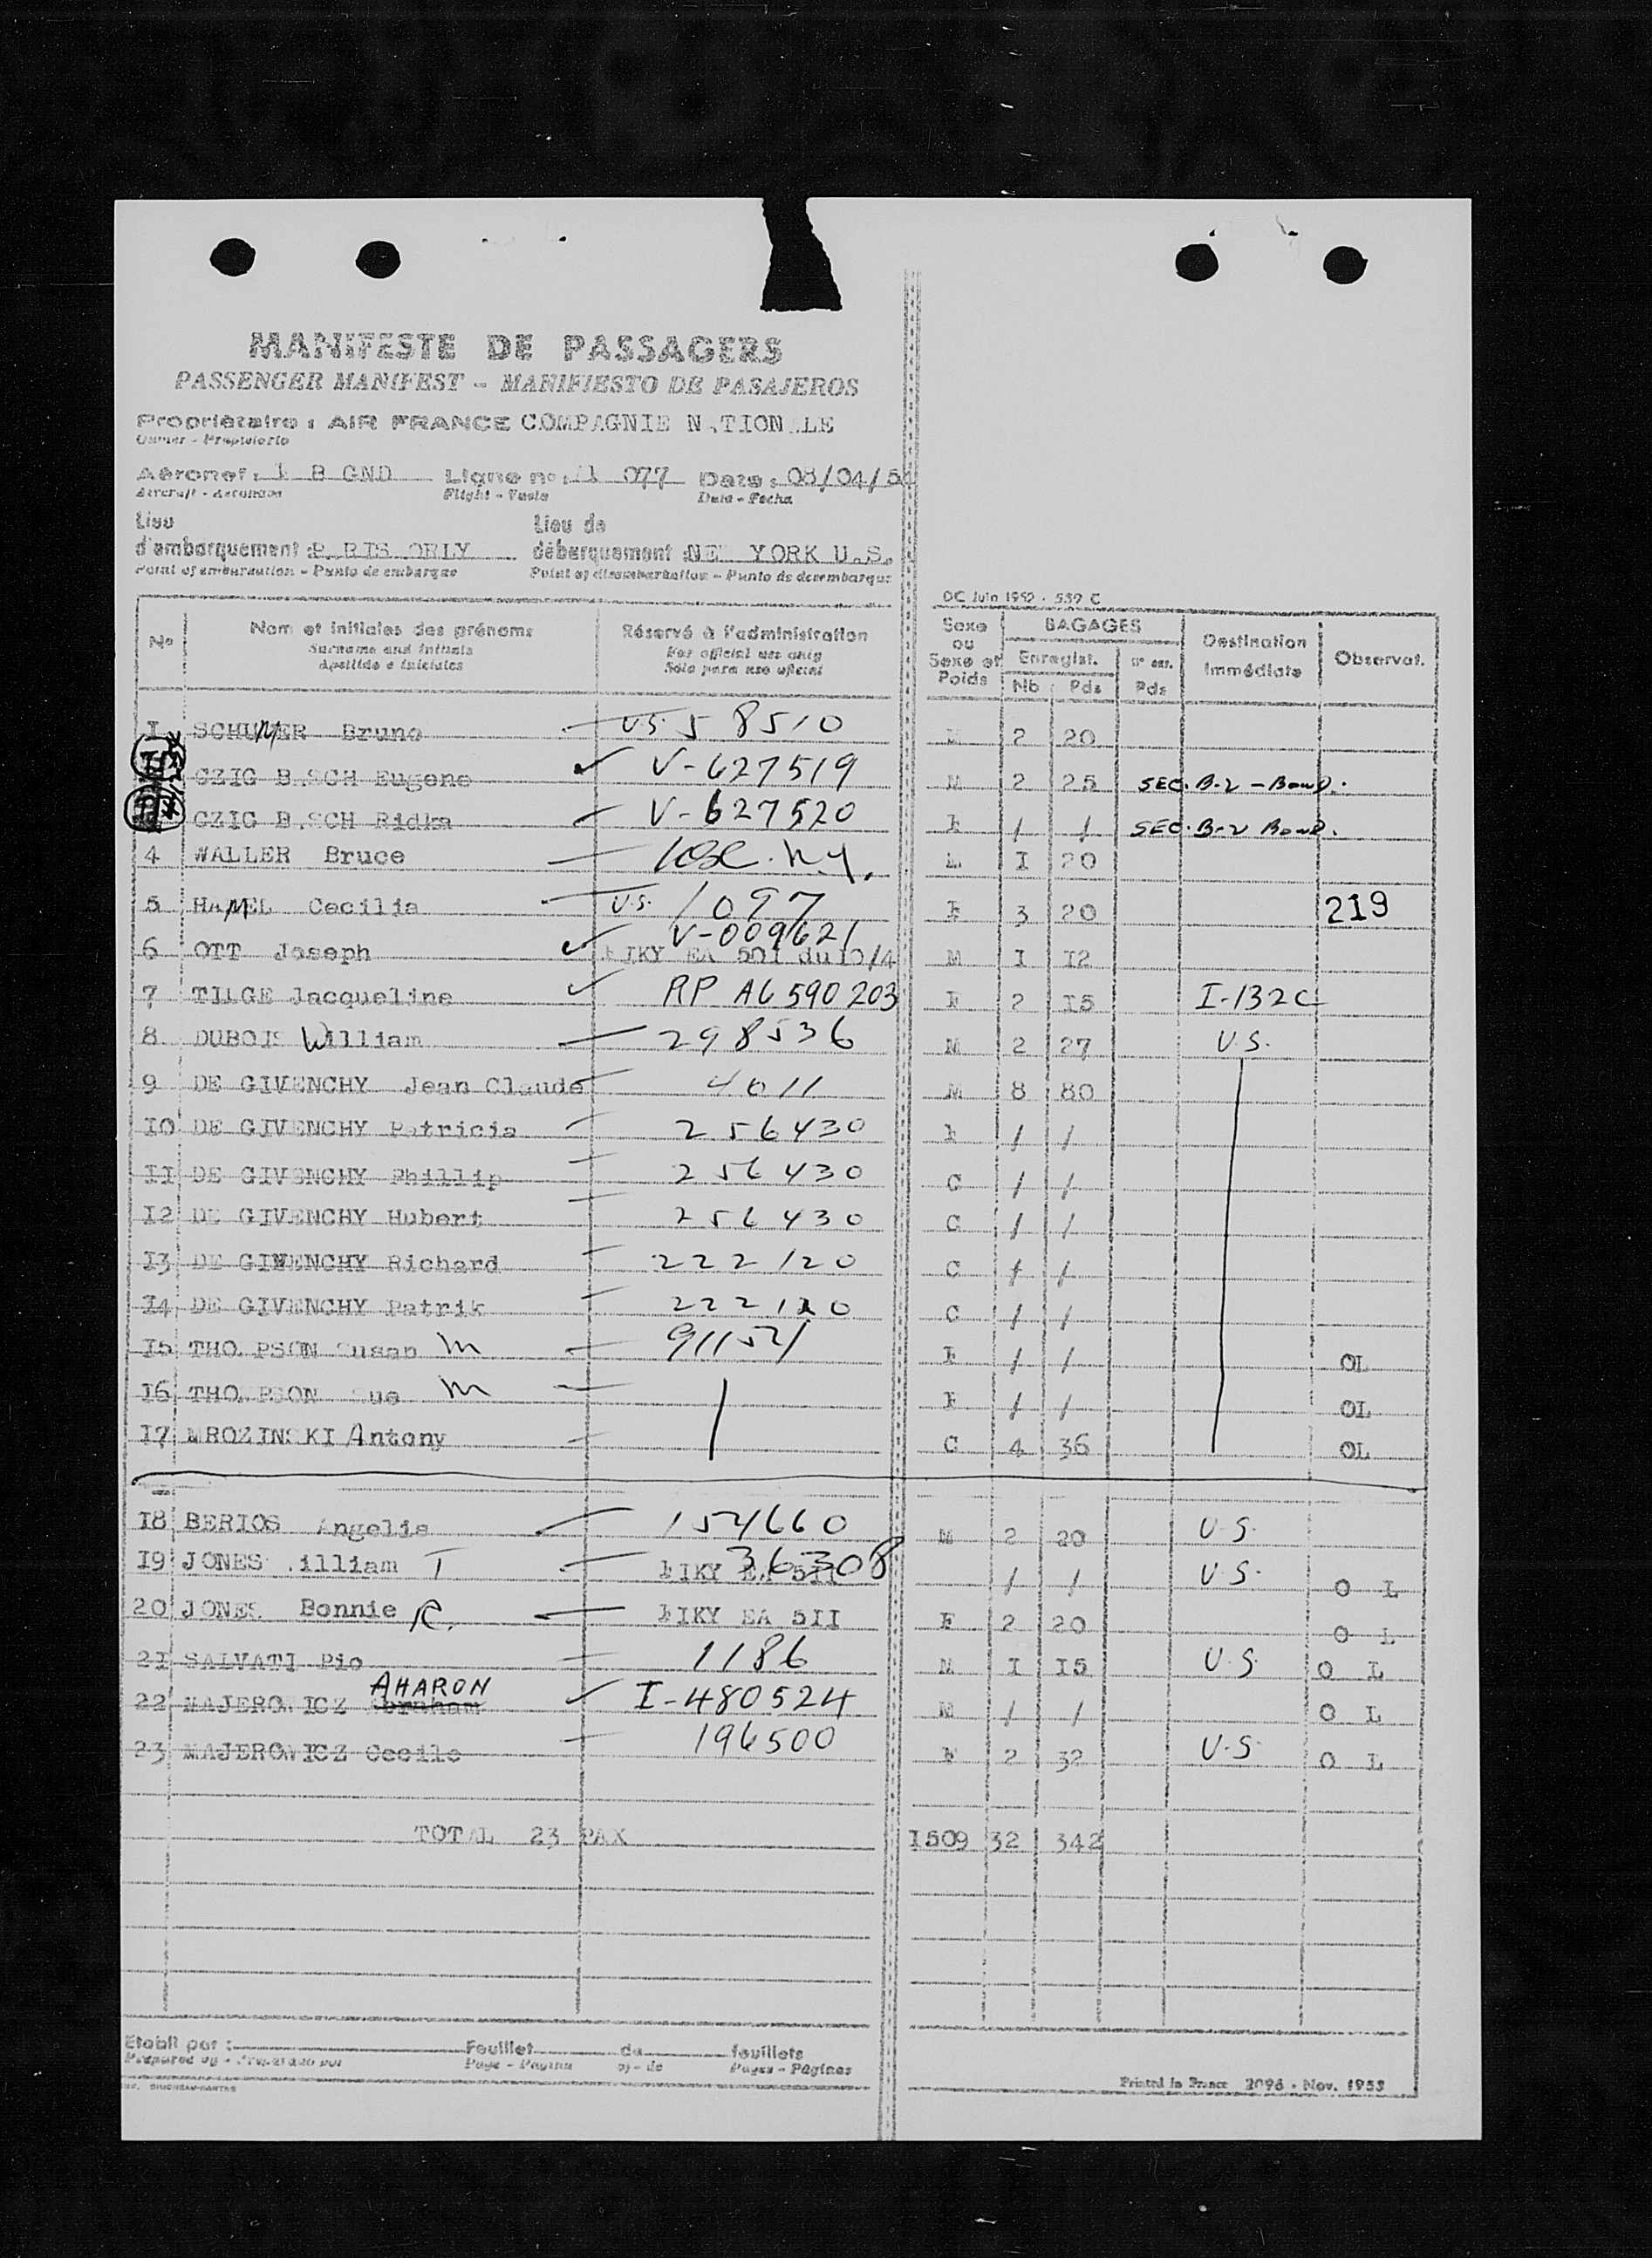 MANIFESTE DE PASSAGERS
PASSENGER MANIFEST - MANIFIESTO DE PASAJEROS
Propriétaire : AIR FRANCE COMPAGNIE N.TION.LE
Owner - Propietario
Aéronef : B GND Ligne no : 077 Date : 08/04/5
Aircraft - Aeronave Flight - Vuelo Date - Fecha
Lieu Lieu de
d'embarquement : P.RIS ORLY débarquement : NE YORK U.S.
Point of embarcation - Punto de embarque Point of disembarkation - Punto de desembarque
DC Juin 1952 - 539 C
No Nom et initiales des prénoms Réservé à l'administration Sexe ou Sexe et Poids BAGAGES Destination immédiate Observat.
Surname and initials For official use only Enregist. Nb Pds
Apellido e iniciales Sólo para uso oficial Pds
1 SCHUMER Bruno U.S. 58510 M 2 20
CZIG B.SCH Eugene V-627519 M 2 25 SEC. B-2 - Bond.
CZIG B.SCH Ridka V-627520 F / / SEC. B-2 Bond.
4 WALLER Bruce N.Y. M I 20
5 HAMEL Cecilia U.S. 1097 F 3 20 219
6 OTT Joseph V-009621 FIKY EA 501 du 10/4 M I I2
7 TILGE Jacqueline RP A6 590 203 F 2 I5 I-132C
8 DUBOIS William 298536 M 2 27 U.S.
9 DE GIVENCHY Jean Claude 4011 M 8 80
I0 DE GIVENCHY Patricia 256430 F / /
II DE GIVENCHY Phillip 256430 C / /
I2 DE GIVENCHY Hubert 256430 C / /
I3 DE GIVENCHY Richard 222120 C / /
I4 DE GIVENCHY Patrik 222120 C / /
I5 THO.PSON Susan M 91154 F / / OL
I6 THOMPSON Sue M F / / OL
I7 MROZINSKI Antony C 4 36 OL
I8 BERIOS Angelis 154660 M 2 20 U.S.
I9 JONES .illiam T 36308 FIKY EA 5II / / U.S. O L
20 JONES Bonnie R. FIKY EA 5II F 2 20 O L
2I SALVATI Pio 1186 M I I5 U.S. O L
AHARON
22 MAJEROWICZ Abraham I-480524 M / / O L
23 MAJEROWICZ Cecile 196500 F 2 32 U.S. O L
TOTAL 23 PAX I509 32 342
Etabli par : Feuillet de feuillets
Prepared by - Preparado por Page - Página of - de Pages - Páginas
Printed in France 2096 - Nov. 1953